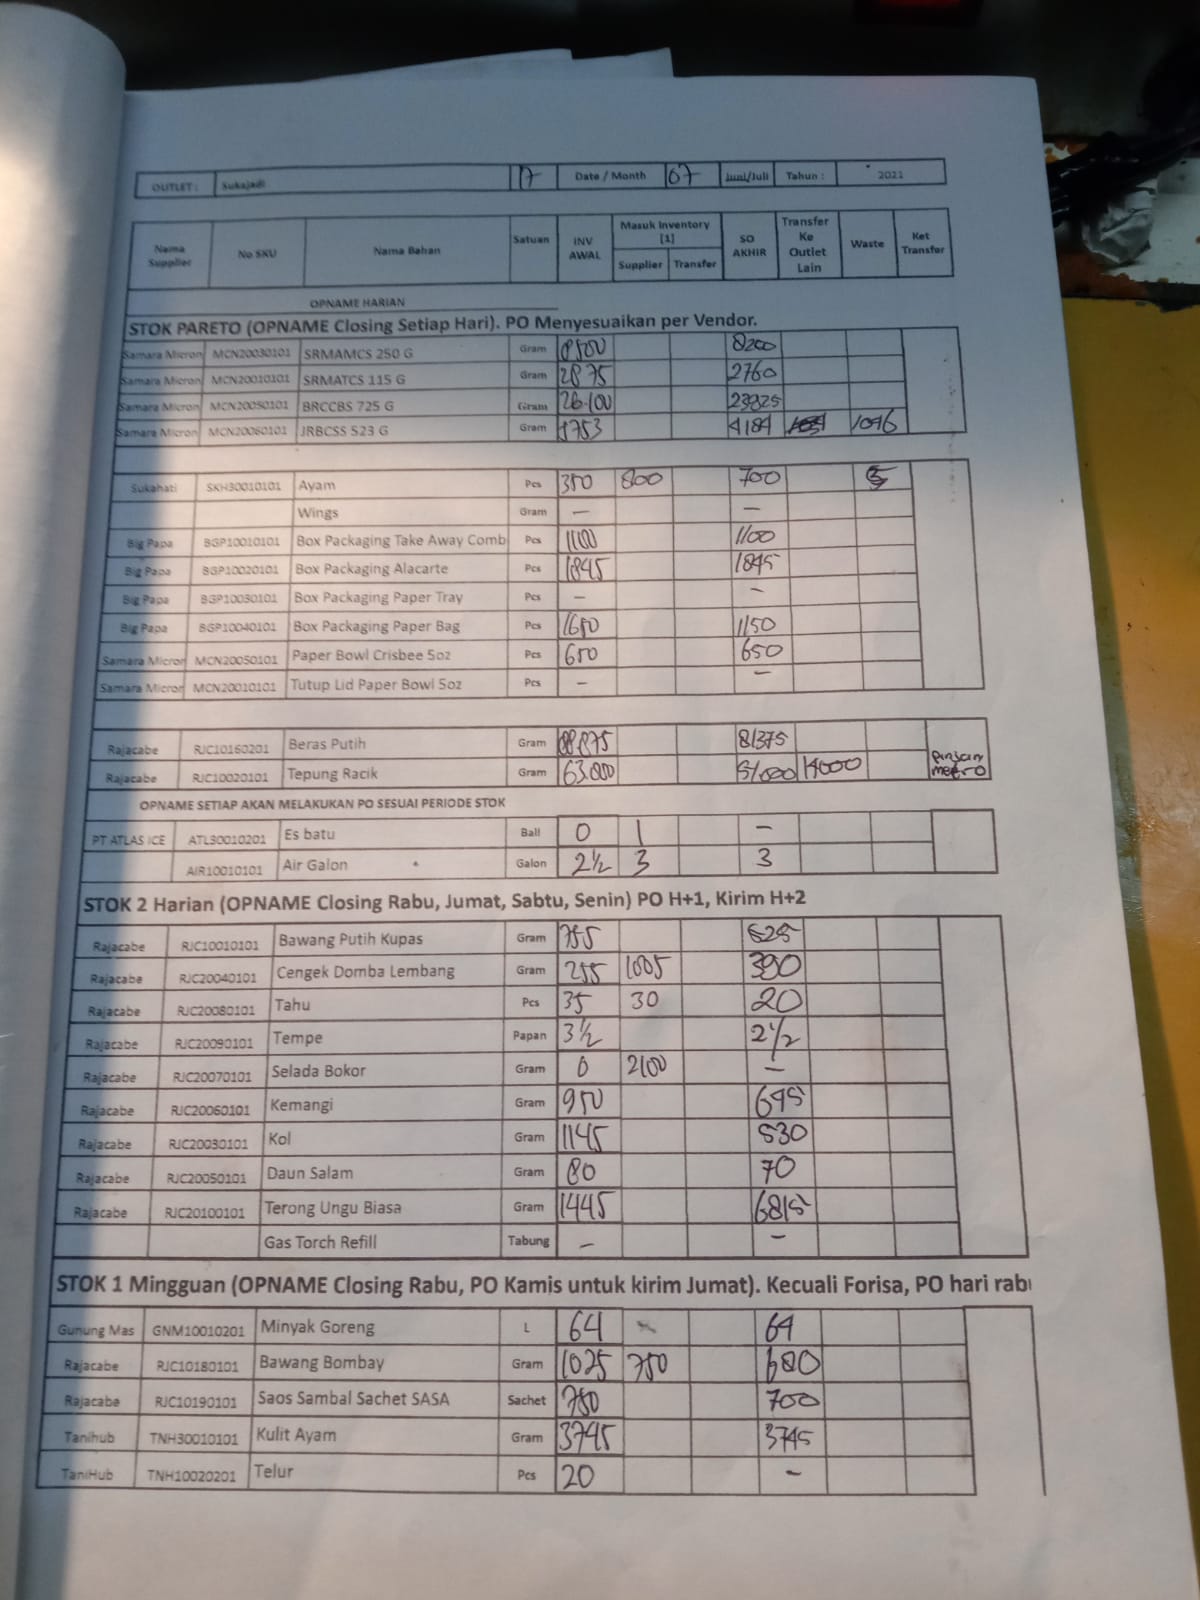 OUTLET : Sukajadi 17 Date / Month 07 Juni/Juli Tahun : 2021
Nama Supplier No SKU Nama Bahan Satuan INV AWAL Masuk Inventory [1] Supplier Transfer SO AKHIR Transfer Ke Outlet Lain Waste Ket Transfer
OPNAME HARIAN
STOK PARETO (OPNAME Closing Setiap Hari). PO Menyesuaikan per Vendor.
Samara Micron MCN20030101 SRMAMCS 250 G Gram 8500 8200
Samara Micron MCN20010101 SRMATCS 115 G Gram 2875 2760
Samara Micron MCN20050101 BRCCBS 725 G Gram 26.100 23925
Samara Micron MCN20060101 JRBCSS 523 G Gram 4184 1046
Sukahati SKH30010101 Ayam Pcs 350 800 700
Wings Gram - -
Big Papa BGP10010101 Box Packaging Take Away Comb Pcs 1100 1100
Big Papa BGP10020101 Box Packaging Alacarte Pcs 1845 1845
Big Papa BGP10030101 Box Packaging Paper Tray Pcs - -
Big Papa BGP10040101 Box Packaging Paper Bag Pcs 1650 1150
Samara Micron MCN20050101 Paper Bowl Crisbee 5oz Pcs 650 650
Samara Micron MCN20010101 Tutup Lid Paper Bowl 5oz Pcs - -
Rajacabe RJC10160201 Beras Putih Gram 88.875 81375
Rajacabe RJC10020101 Tepung Racik Gram 63.000 51.000 14000 metro
OPNAME SETIAP AKAN MELAKUKAN PO SESUAI PERIODE STOK
PT ATLAS ICE ATL30010201 Es batu Ball 0 1 -
AIR10010101 Air Galon Galon 2½ 3 3
STOK 2 Harian (OPNAME Closing Rabu, Jumat, Sabtu, Senin) PO H+1, Kirim H+2
Rajacabe RJC10010101 Bawang Putih Kupas Gram 755 525
Rajacabe RJC20040101 Cengek Domba Lembang Gram 255 1005 390
Rajacabe RJC20080101 Tahu Pcs 35 30 20
Rajacabe RJC20090101 Tempe Papan 3½ 2½
Rajacabe RJC20070101 Selada Bokor Gram 0 2100 -
Rajacabe RJC20060101 Kemangi Gram 950 695
Rajacabe RJC20030101 Kol Gram 1145 530
Rajacabe RJC20050101 Daun Salam Gram 80 70
Rajacabe RJC20100101 Terong Ungu Biasa Gram 1445 6815
Gas Torch Refill Tabung - -
STOK 1 Mingguan (OPNAME Closing Rabu, PO Kamis untuk kirim Jumat). Kecuali Forisa, PO hari rabu
Gunung Mas GNM10010201 Minyak Goreng L 64 64
Rajacabe RJC10180101 Bawang Bombay Gram 1025 750 680
Rajacabe RJC10190101 Saos Sambal Sachet SASA Sachet 750 700
Tanihub TNH30010101 Kulit Ayam Gram 3745 3745
TaniHub TNH10020201 Telur Pcs 20 -